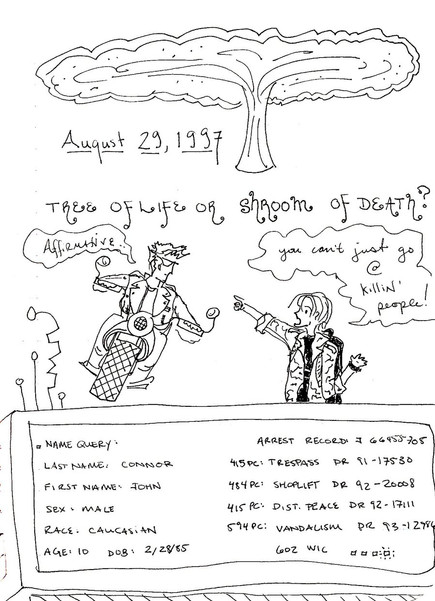 August 29, 1997
TREE OF LIFE OR SHROOM OF DEATH?
Affirmative.
you can't just go
@
killin'
people!
NAME QUERY:
LAST NAME: CONNOR
FIRST NAME: JOHN
SEX: MALE
RACE: CAUCASIAN
AGE: 10 DOB: 2/28/85
ARREST RECORD:
415 PC: TRESPASS DR 91-17530
484 PC: SHOPLIFT DR 92-20008
415 PC: DIST. PEACE DR 92-17111
594 PC: VANDALISM DR 93-1279
602 WIC